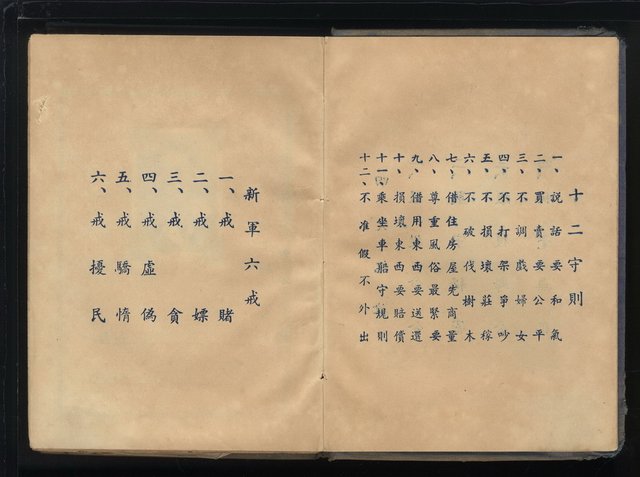 十二守則
一、說話要和氣
二、買賣要公平
三、不調戲婦女
四、不打架爭吵
五、不損壞莊稼
六、不破伐樹木
七、借住房屋先商量
八、尊重風俗最緊要
九、借用東西要送還
十、損壞東西要賠償
十一、乘坐車船守規則
十二、不准假不外出
新軍六戒
一、戒賭
二、戒嫖
三、戒貪
四、戒虛偽
五、戒驕惰
六、戒擾民